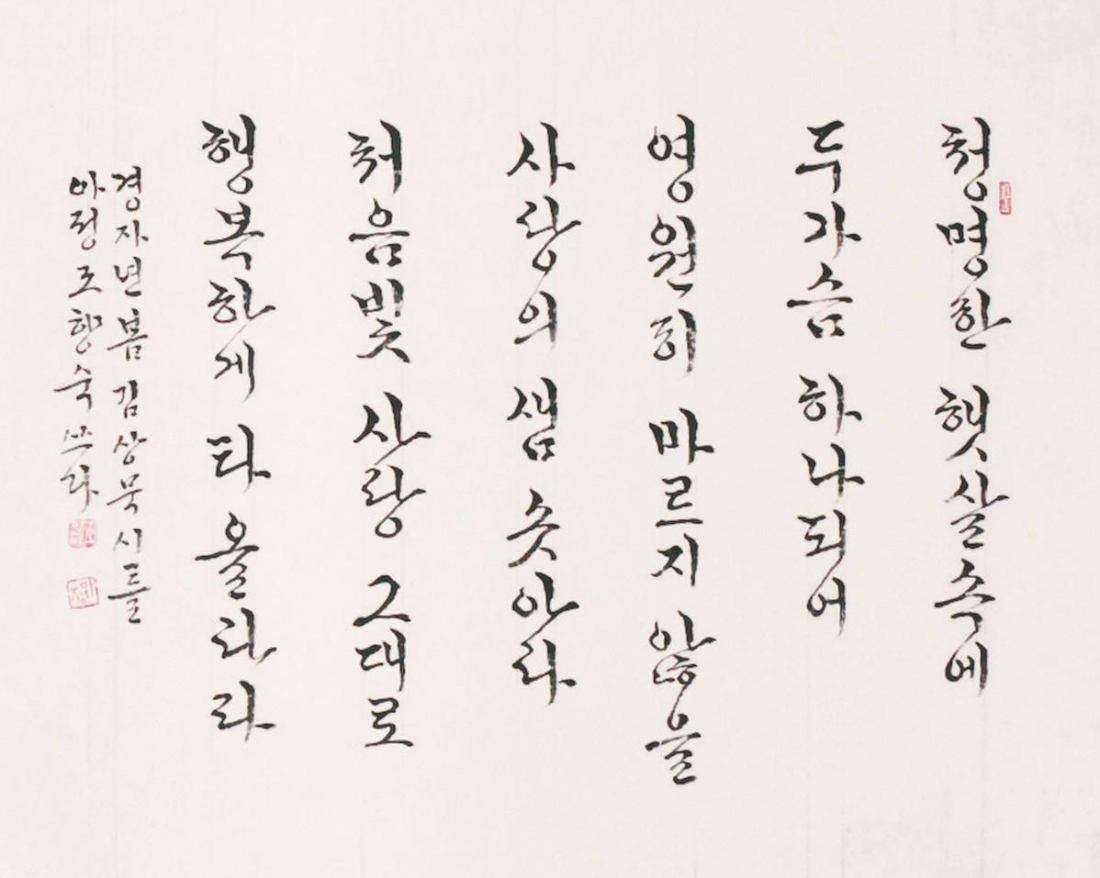 청명한 햇살속에
두가슴 하나되어
영원히 마르지 않을
사랑의 샘 솟아라
처음빛 사랑 그대로
행복하게 타올라라
경자년봄 김상묵 시를
아정 조향숙 쓰다